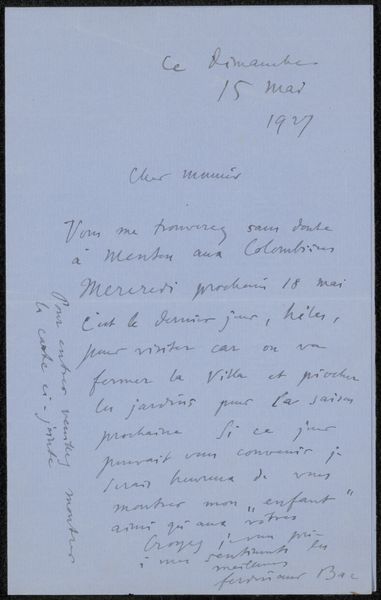 Ce Dimanche
15 Mai
1927
Cher monsieur
Vous me trouverez sans doute
à Menton aux Colombières
Mercredi prochain 18 mai
C'est le dernier jour, hélas,
pour visiter car on va
fermer la Villa et piocher
les jardins pour la saison
prochaine Si ce jour
pouvait vous convenir je
serais heureux de vous
montrer mon „enfant"
ainsi qu'aux vôtres
Croyez je vous prie
à mes sentiments les
meilleurs
Ferdinand Bac
Pour entrer veuillez montrer
la carte ci-jointe